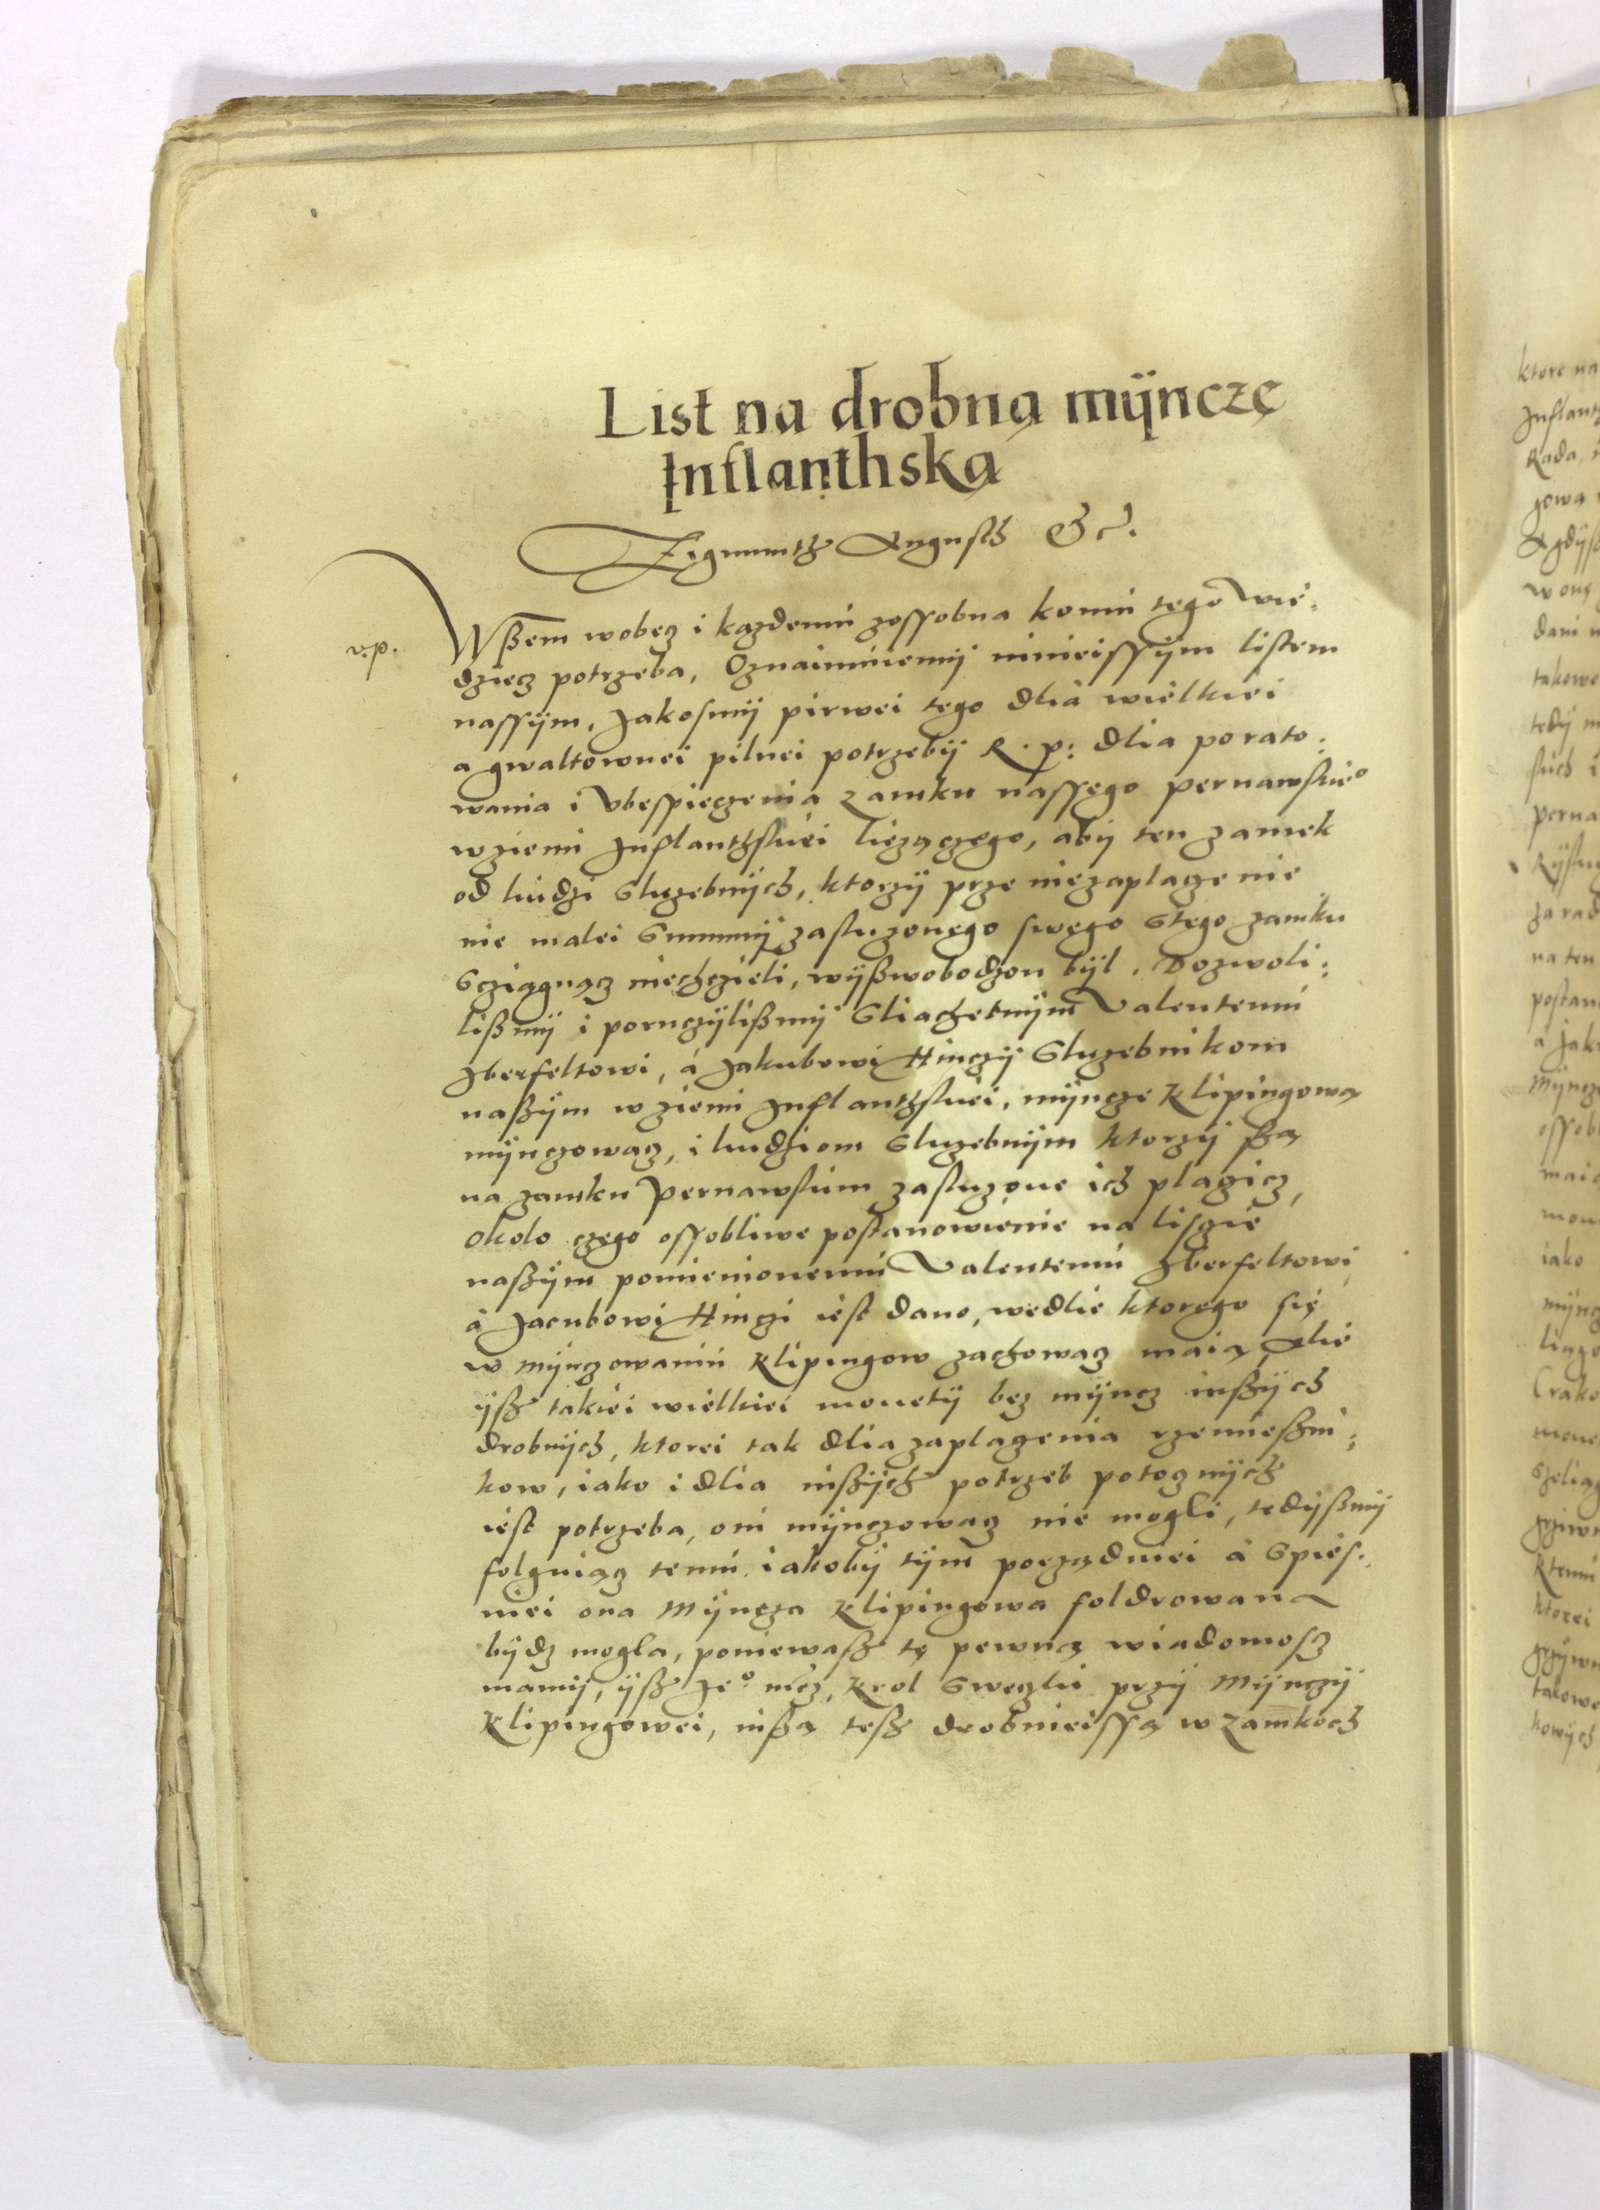 List na drobną mÿnczę
Inflanthską
Zigmunth Augusth &c.
v.p.
Wßem wobecz i kazdemu zossobna komu tego wie:
dziecz potrzeba, Oznaimuiemÿ ninieissÿm listem
nassÿm, Jakosmÿ pirwei tego dlia wielkiei
a gwaltownei pilnei potrzebÿ R. p: dlia porato:
wania i Ubespieczenia zamku nassego pernawskie°
w ziemi Inflanthskiei liezączego, abÿ ten zamek
od liudzi Sluzebnÿch, ktorzÿ prze niezaplaczenie
nie malei Summÿ zasluzonego swego Stego zamku
Scziągnącz niechczieli, wÿßwobodzon bÿl. Dozwoli:
lißmÿ i poruczÿlißmÿ Sliachetnÿm Valentemu
Iberfeltowi, à Jakubowi Hinczÿ Sluzebnikom
naßÿm w ziemi Inflanthskiei, mÿncze klipingową
mÿnczowacz, i liudziom Sluzebnÿm ktorzÿ ßą
na zamku Pernawskim zasluzone ich placzicz,
okolo czego ossobliwe postanowienie na lisczie
naßÿm pomienionemu Valentemu Iberfeltowi,
à Jacubowi Hinczi iest dano, wedlie ktorego się
w mÿnczowaniu klipingow zachowacz maią, Alie
ÿß takiei wielkiei monetÿ bez mÿncz inßÿch
drobnÿch, ktorei tak dlia zaplaczenia rzemießni:
kow, iako i dlia inßÿch potrzeb potocznÿch
iest potrzeba, oni mÿnczowacz nie mogli, tedÿßmÿ
folguiącz temu iakobÿ tÿm porządniei à Spies:
niei ona Mÿncza klipingowa foldrowana
bÿdz mogla, poniewaß tę pewną wiadomoscz
mamÿ, ÿß Je° mcz, krol Sweczki przÿ Mÿnczÿ
klipingowei, inßą teß drobnieissą w zamkoch